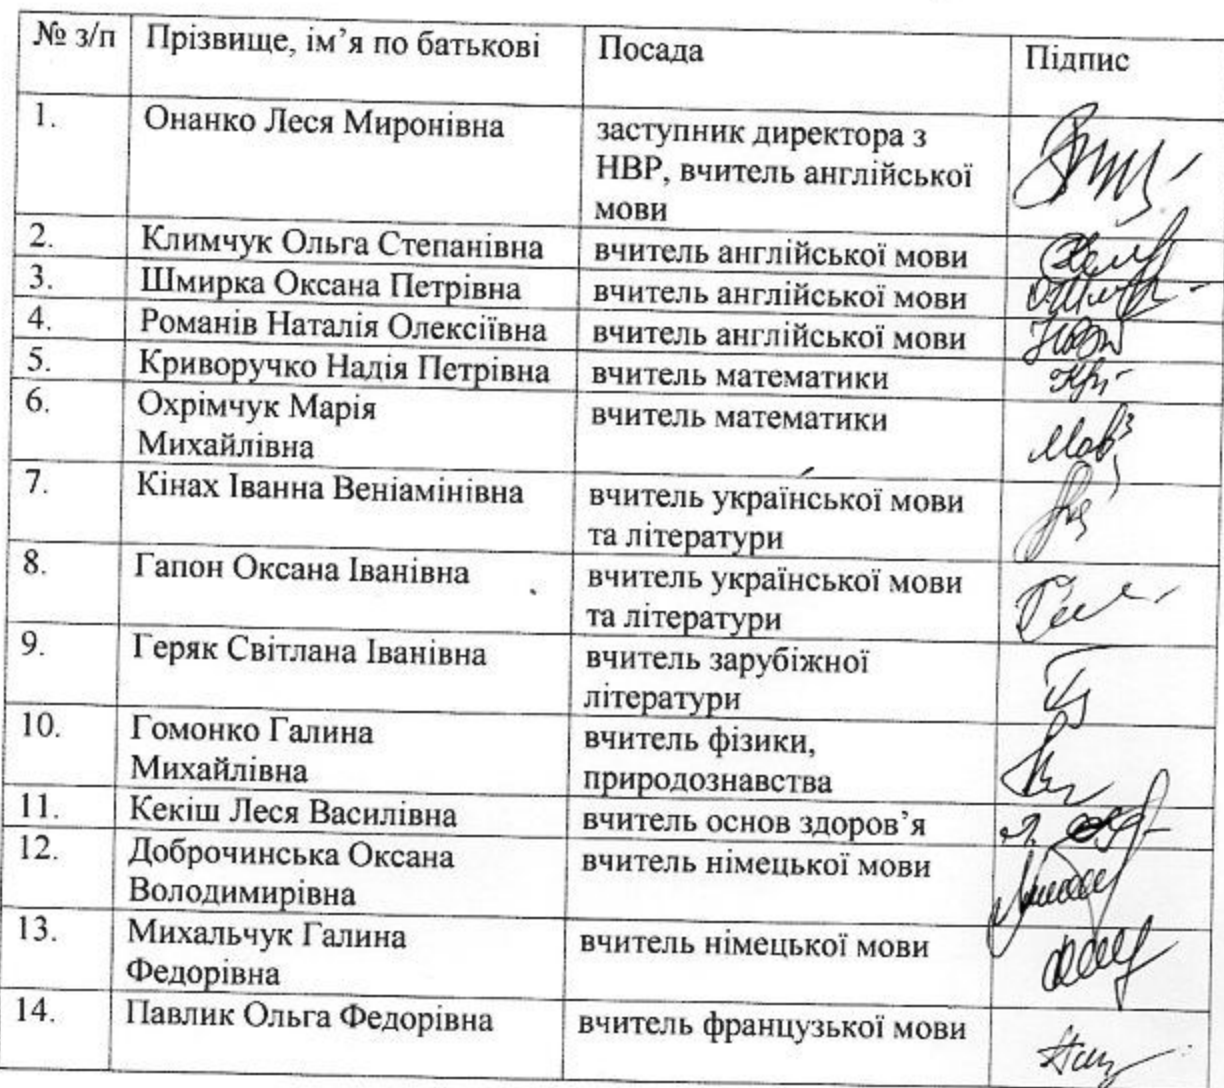 № з/п Прізвище, ім’я по батькові Посада Підпис
1. Онанко Леся Миронівна заступник директора з
НВР, вчитель англійської
мови
2. Климчук Ольга Степанівна вчитель англійської мови
3. Шмирка Оксана Петрівна вчитель англійської мови
4. Романів Наталія Олексіївна вчитель англійської мови
5. Криворучко Надія Петрівна вчитель математики
6. Охрімчук Марія вчитель математики
Михайлівна
7. Кінах Іванна Веніамінівна вчитель української мови
та літератури
8. Гапон Оксана Іванівна вчитель української мови
та літератури
9. Геряк Світлана Іванівна вчитель зарубіжної
літератури
10. Гомонко Галина вчитель фізики,
Михайлівна природознавства
11. Кекіш Леся Василівна вчитель основ здоров’я
12. Доброчинська Оксана вчитель німецької мови
Володимирівна
13. Михальчук Галина вчитель німецької мови
Федорівна
14. Павлик Ольга Федорівна вчитель французької мови